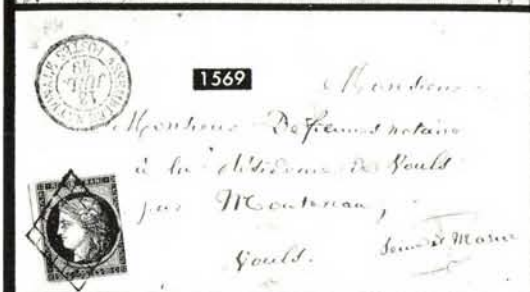 POSTES ASSEMBLEE NATIONALE
1569
Monsieur
Monsieur Defiennes notaire
à la résidence de Voulx
par Montereau,
Voulx. Seine et Marne